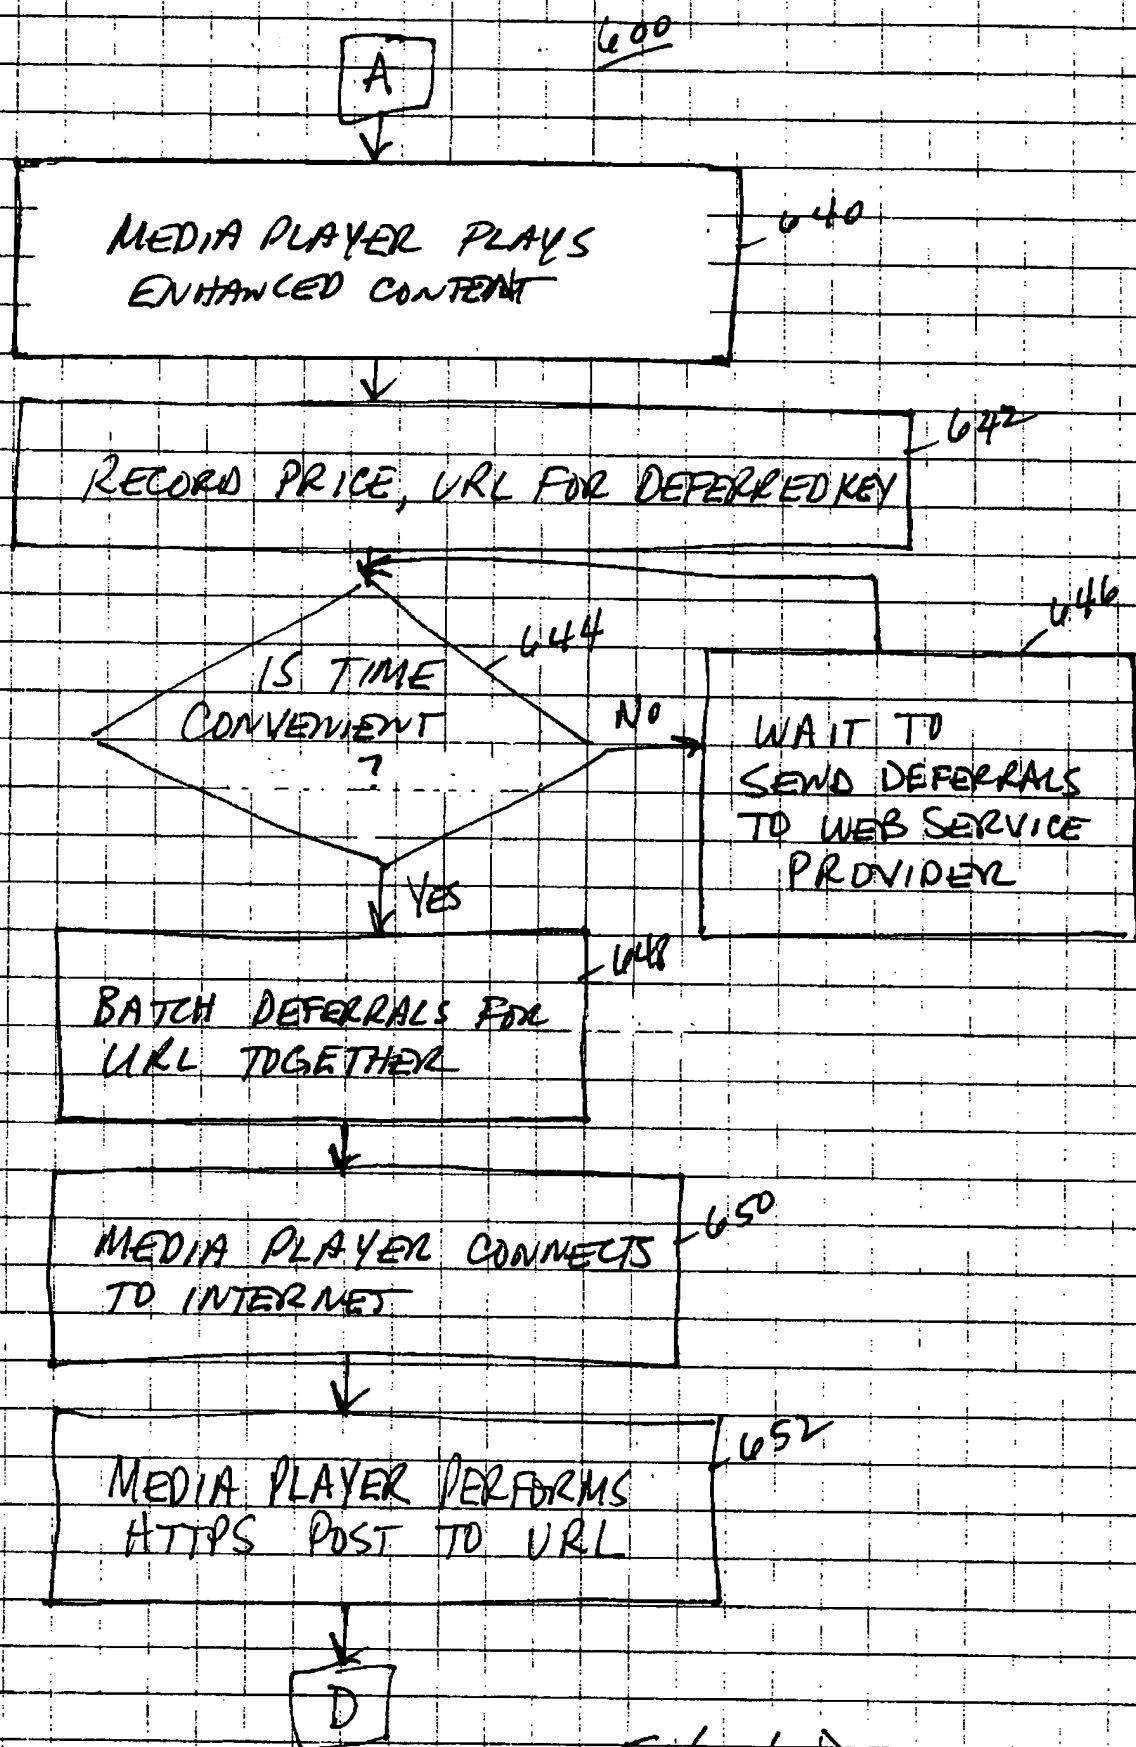 600
A
MEDIA PLAYER PLAYS
ENHANCED CONTENT
640
642
RECORD PRICE, URL FOR DEFERRED KEY
644
646
IS TIME
CONVENIENT
?
NO
WAIT TO
SEND DEFERRALS
TO WEB SERVICE
PROVIDER
YES
648
BATCH DEFERRALS FOR
URL TOGETHER
650
MEDIA PLAYER CONNECTS
TO INTERNET
652
MEDIA PLAYER PERFORMS
HTTPS POST TO URL
D